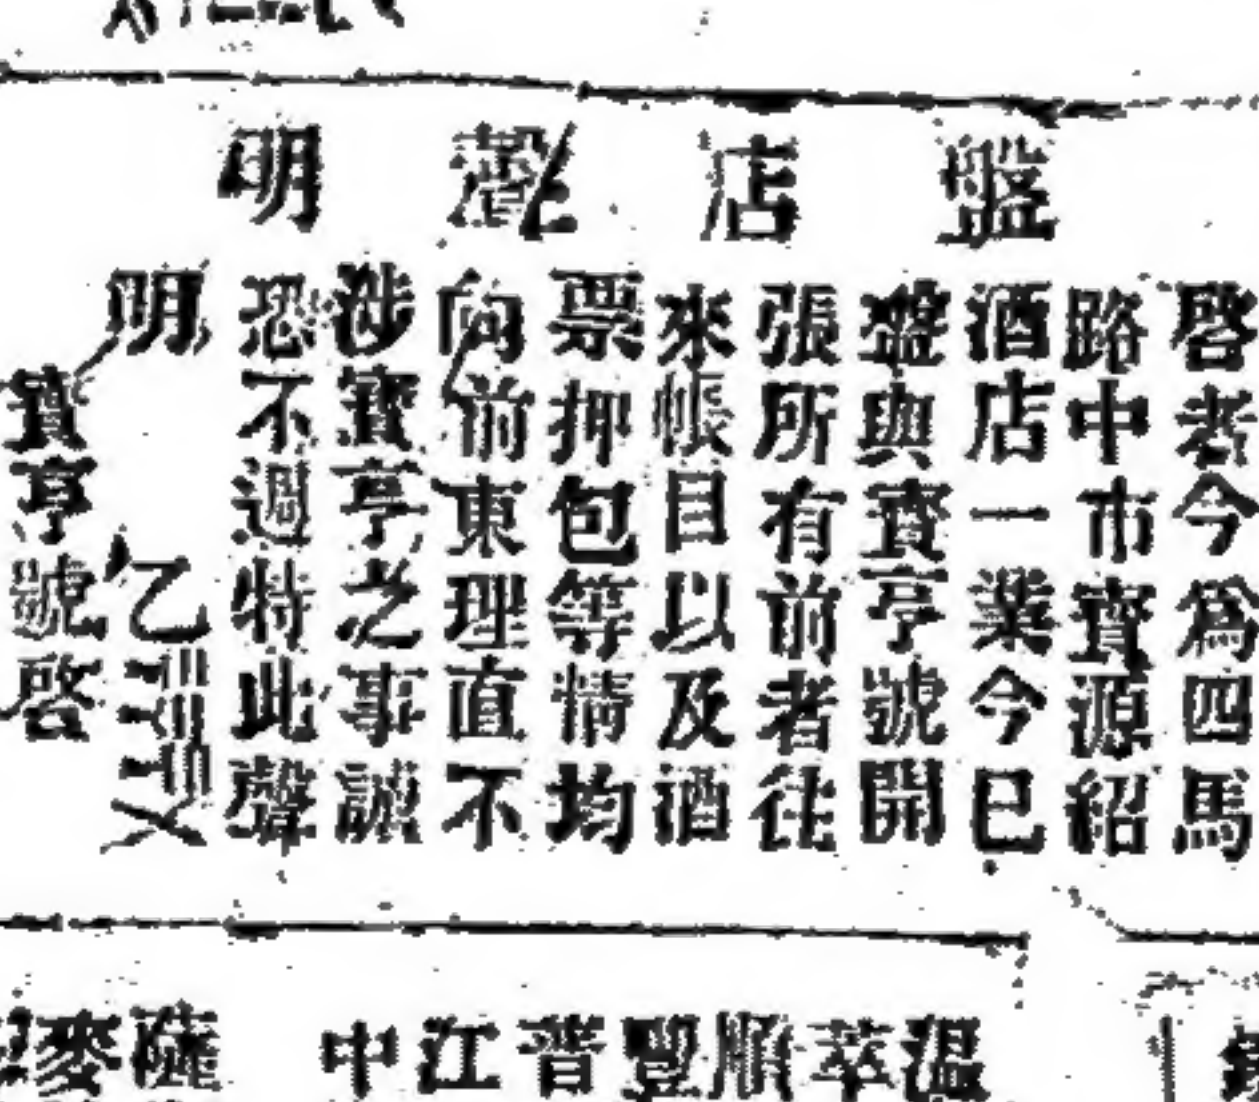 盤店聲明
啓者今為四馬
路中市寶源紹
酒店一業今已
盤與寶亨號開
張所有前者往
來帳目以及酒
票押包等情均
向前東理直不
涉寶亨之事誠
恐不週特此聲
明
寶亨號啓
溫萃順豐晉江中